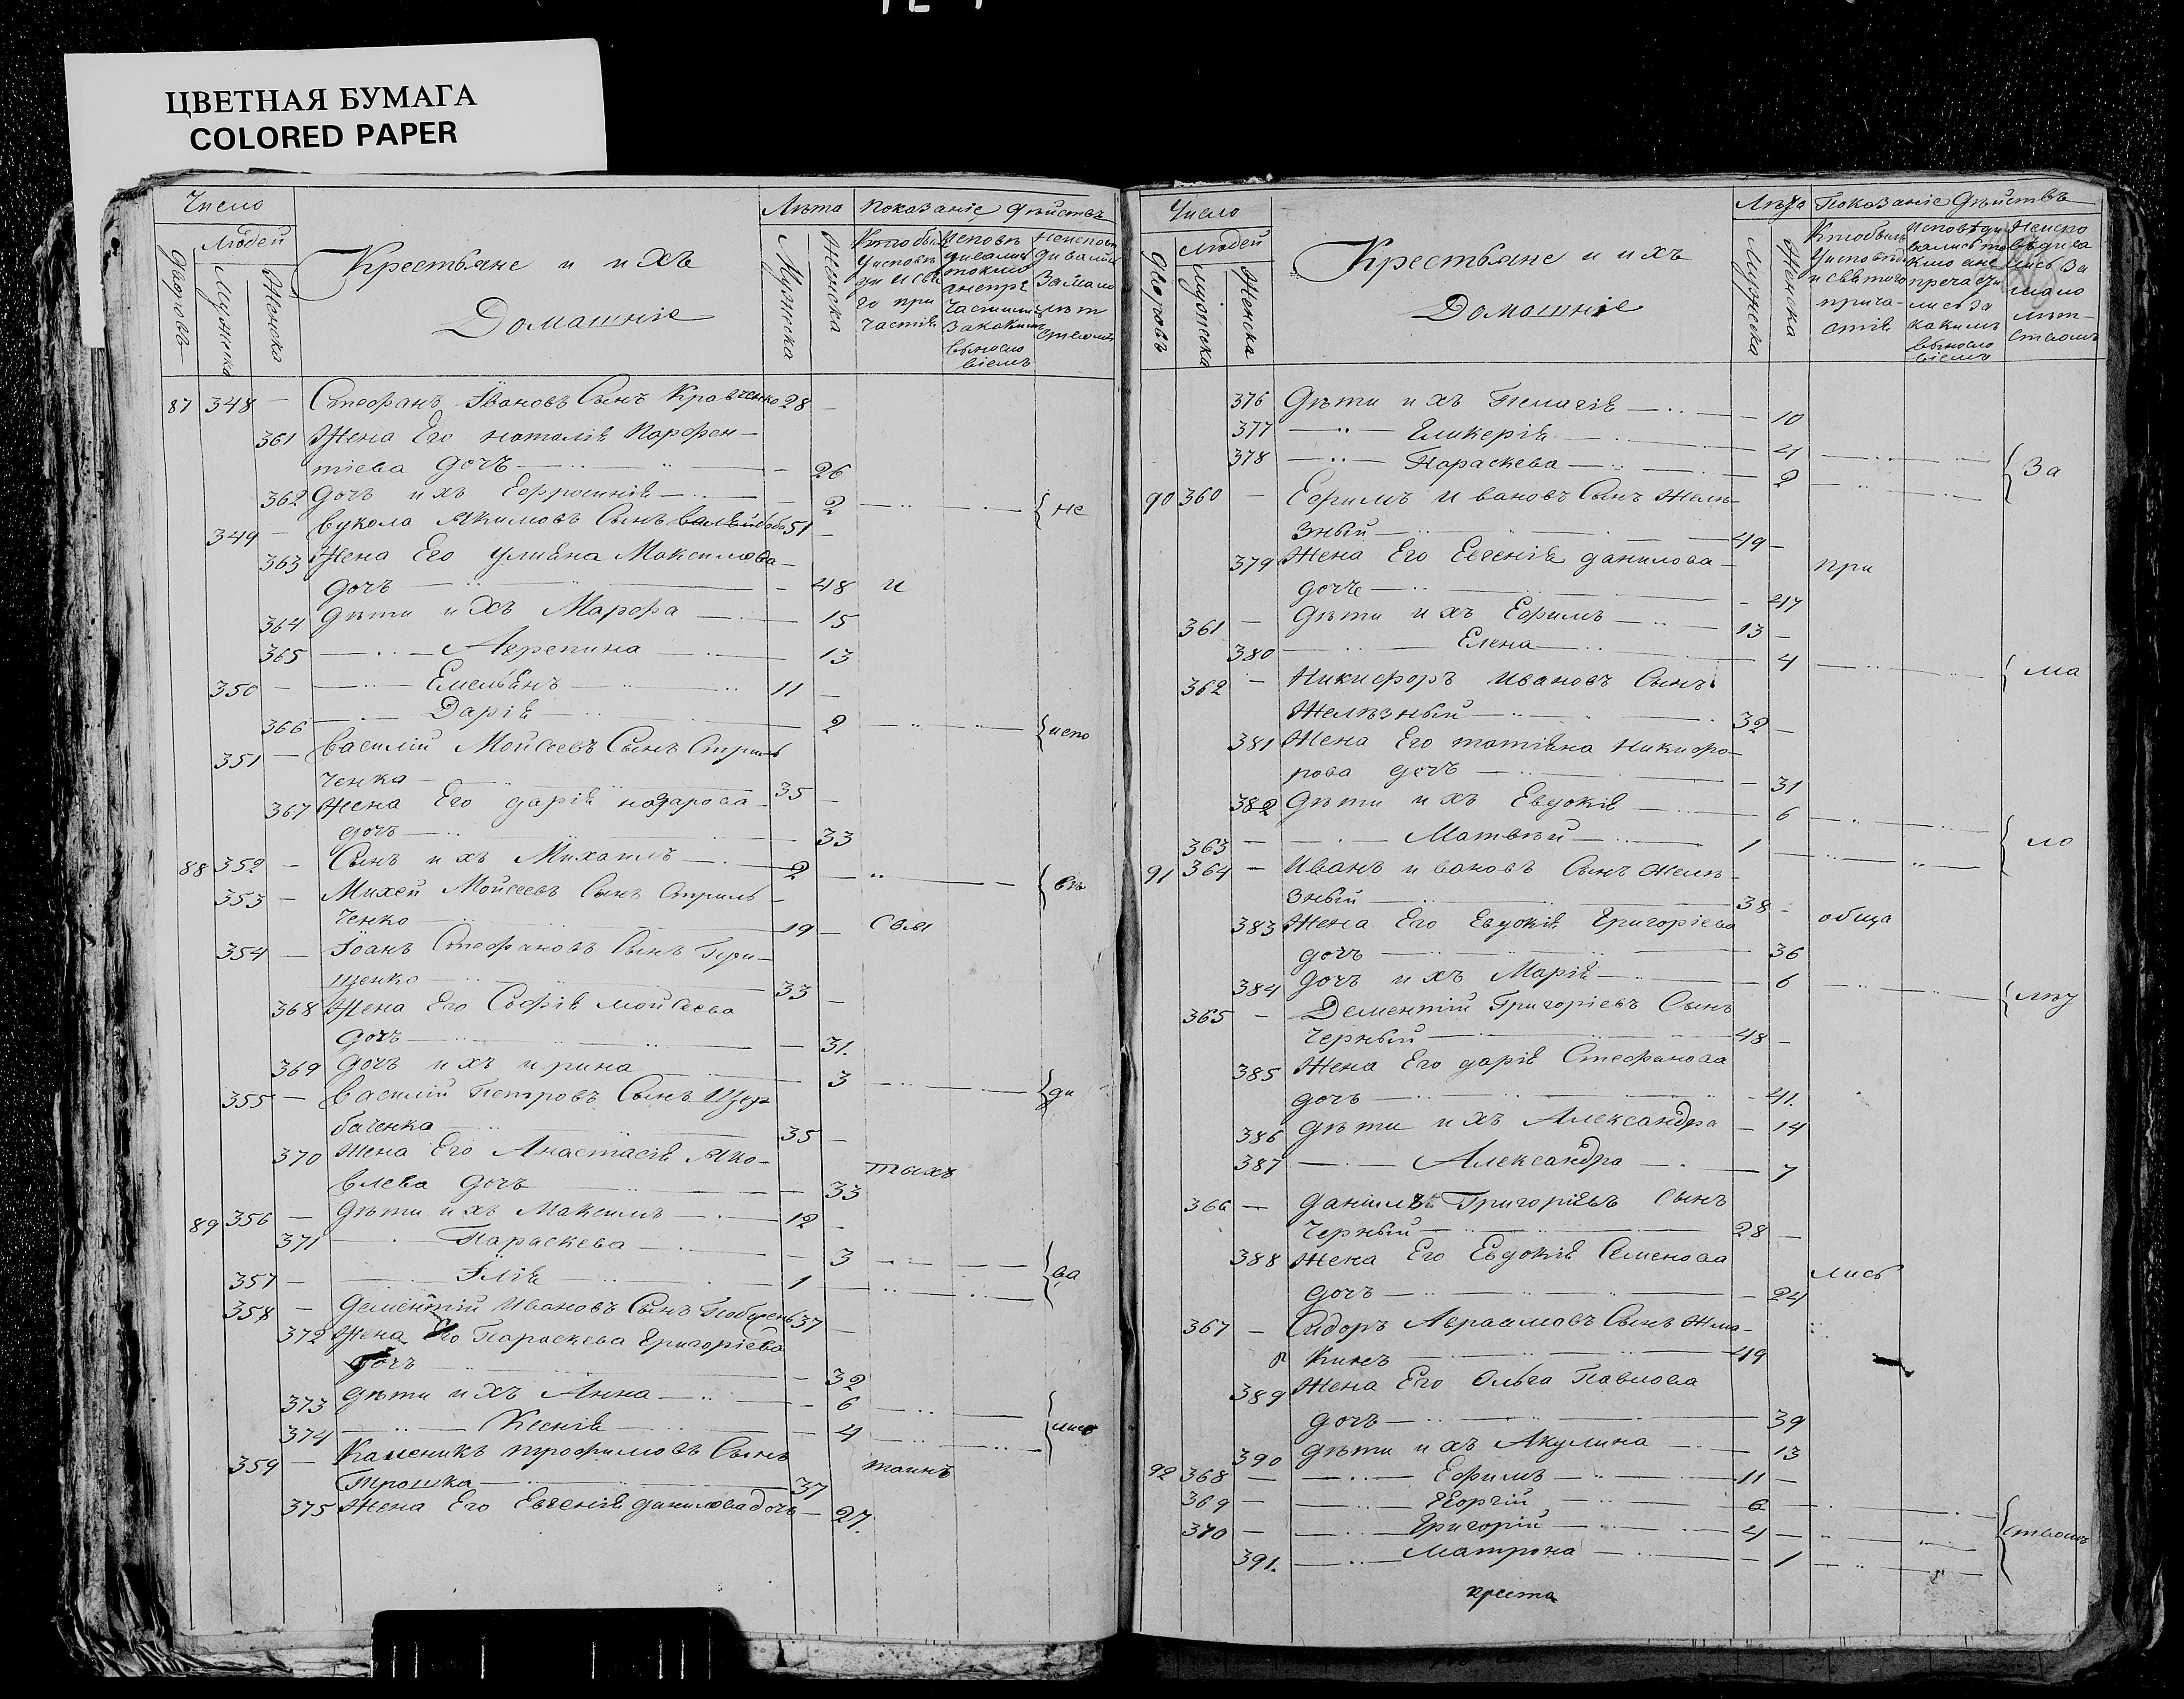 ЦВЕТНАЯ БУМАГА
COLORED PAPER
Число
Людей
Дворовъ
Мужеска
Женска
Крестьяне и ихъ
Домашніе
Лѣта
Мужеска
Женска
Показаніе дѣйствъ
87 348 — Стефанъ Івановъ Сынъ Кравченко 28 —
361 Жена Его наталія Парфен—
тіева дочь — 26
362 дочь ихъ Ефросинія — 2 { не
349 — Вукола Якимовъ Сынъ 51 —
363 Жена Его Улияна Максимова—
дочь — 48 и
364 дѣти ихъ Марфа — 15
365 — Агрепина — 13
350 — Емельянъ 11 —
366 — Дарія — 2 { испо
351 — Василій Мойсеевъ Сынъ Стриль
ченка — 35 —
367 Жена Его дарія назарова
дочь — 33
88 352 — Сынъ ихъ Михаилъ — 2 { вѣ
353 — Михей Мойсеевъ Сынъ Стриль—
ченко — 19 — Свя
354 — Іоанъ Стефановъ Сынъ Гри—
щенко — 33 —
368 Жена Его Софія мойсеева
дочь — 31.
369 дочь ихъ ирина 3 { ди
355 — Василій Петровъ Сынъ Щер
баченка — 35 —
370 Жена Его Анастасія Яко—
влева дочь — 33 тыхъ
89 356 — дѣти ихъ Максимъ — 12 —
371 — Параскева — 3 { ва
357 — Ілія — 1
358 — дементій Ивановъ Сынъ 37 —
372 Жена Его Параскева Григоріева
дочь — 32
373 дѣти ихъ Анна — 6 { лись
374 — Ксенія — 4
359 — Каленикъ трофимовъ Сынъ
Трошка — 37 таинъ
375 Жена Его Евгенія данилова дочь — 27.
Число
Людей
Дворовъ
Мужеска
Женска
Крестьяне и ихъ
Домашніе
Лѣта
Мужеска
Женска
Показаніе Дѣйствъ
376 дѣти ихъ Пелагія — 10
377 — Гликерія — 4 { За
378 — Параскева — 2
90 360 — Ефримъ Ивановъ Сынъ желѣ—
зный — 49 —
379 Жена Его Евгенія данилова — при
дочь — 47
361 — дѣти ихъ Ефимъ — 13 —
380 Елена — 4 { ма
362 — Никифоръ Ивановъ Сынъ
Желѣзный — 32 —
381 Жена Его татіяна Никифо—
рова дочь — 31
382 дѣти ихъ Евдокія 6 { ло
363 — Матвѣй — 1
91 364 — Иванъ ивановъ Сынъ желѣ—
зный — 38 —
383 Жена Его Евдокія Григоріева обща
дочь — 36
384 дочь ихъ Марія — 6 { лѣт
365 — Дементій Григоріевъ Сынъ
Черный — 48 —
385 Жена Его дарія Стефанова
дочь — 41.
386 дѣти ихъ Александра — 14
387 — Александра — 7
366 — даніилъ Григоріевъ Сынъ
Черный — 28 —
388 Жена Его Евдокія Семенова лись
дочь — 24
367 — Сидоръ Авраамовъ Сынъ Жма—
кинъ — 49
389 Жена Его Ольга Павлова
дочь — 39
390 дѣти ихъ Акулина — 13
92 368 — Ефимъ — 11 —
369 — Георгій — 6
370 — Григорій — 4 { ствомъ
391. — Матрона — 1
креста